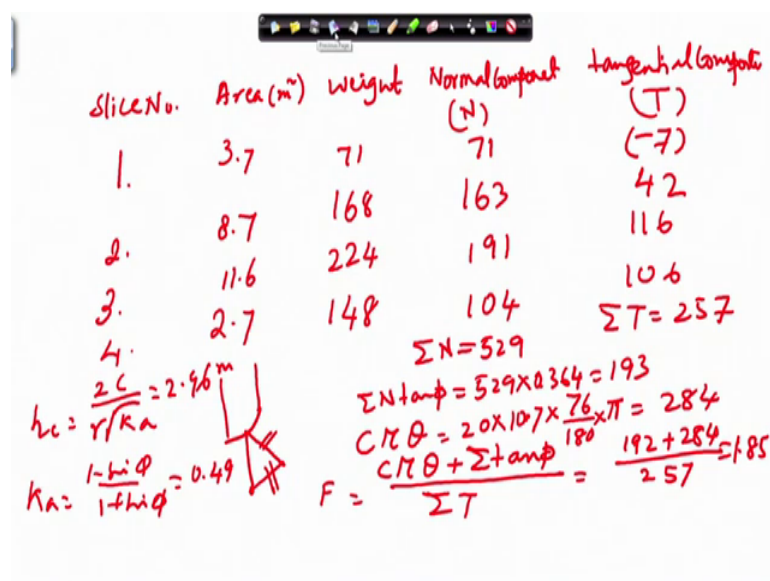 Slice No. Area (m²) Weight Normal Componet (N) tangential Compote (T)
1. 3.7 71 71 (-7)
2. 8.7 168 163 42
3. 11.6 224 191 116
4. 2.7 148 104 106
ΣN = 529 ΣT = 257
hc = 2C / r√Ka = 2.96 m
Ka = 1-sinφ / 1+sinφ = 0.49
ΣN tanφ = 529 × 0.364 = 193
C r θ = 20 × 10.7 × 76/180 × π = 284
F = C r θ + Σ tanφ / ΣT = 192 + 284 / 257 = 1.85
Previous Page